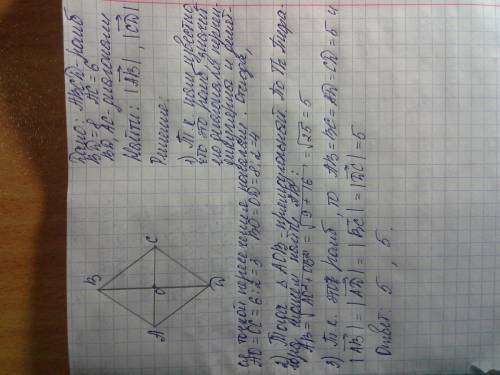 Дано: ABCD-ромб
BD=8 AC=6
BD, AC-диагонали
Найти: |AB|, |CD|
Решение:
1) Т.к нам известно,
что это ромб, значит
его диагонали перпен-
дикулярны и делят-
ся точкой пересечения пополам. Отсюда,
AO=OC=6:2=3 BO=OD=8:2=4
2) Тогда △AOB-прямоугольный. По Т. Пифа-
гора можем найти AB:
AB=√AO²+OB²=√9+16=√25=5
3) Т.к. это ромб, то AB=BC=AD=CD=5 и
|AB|=|AD|=|BC|=|DC|=5
Ответ: 5, 5.
B
A
O
C
D